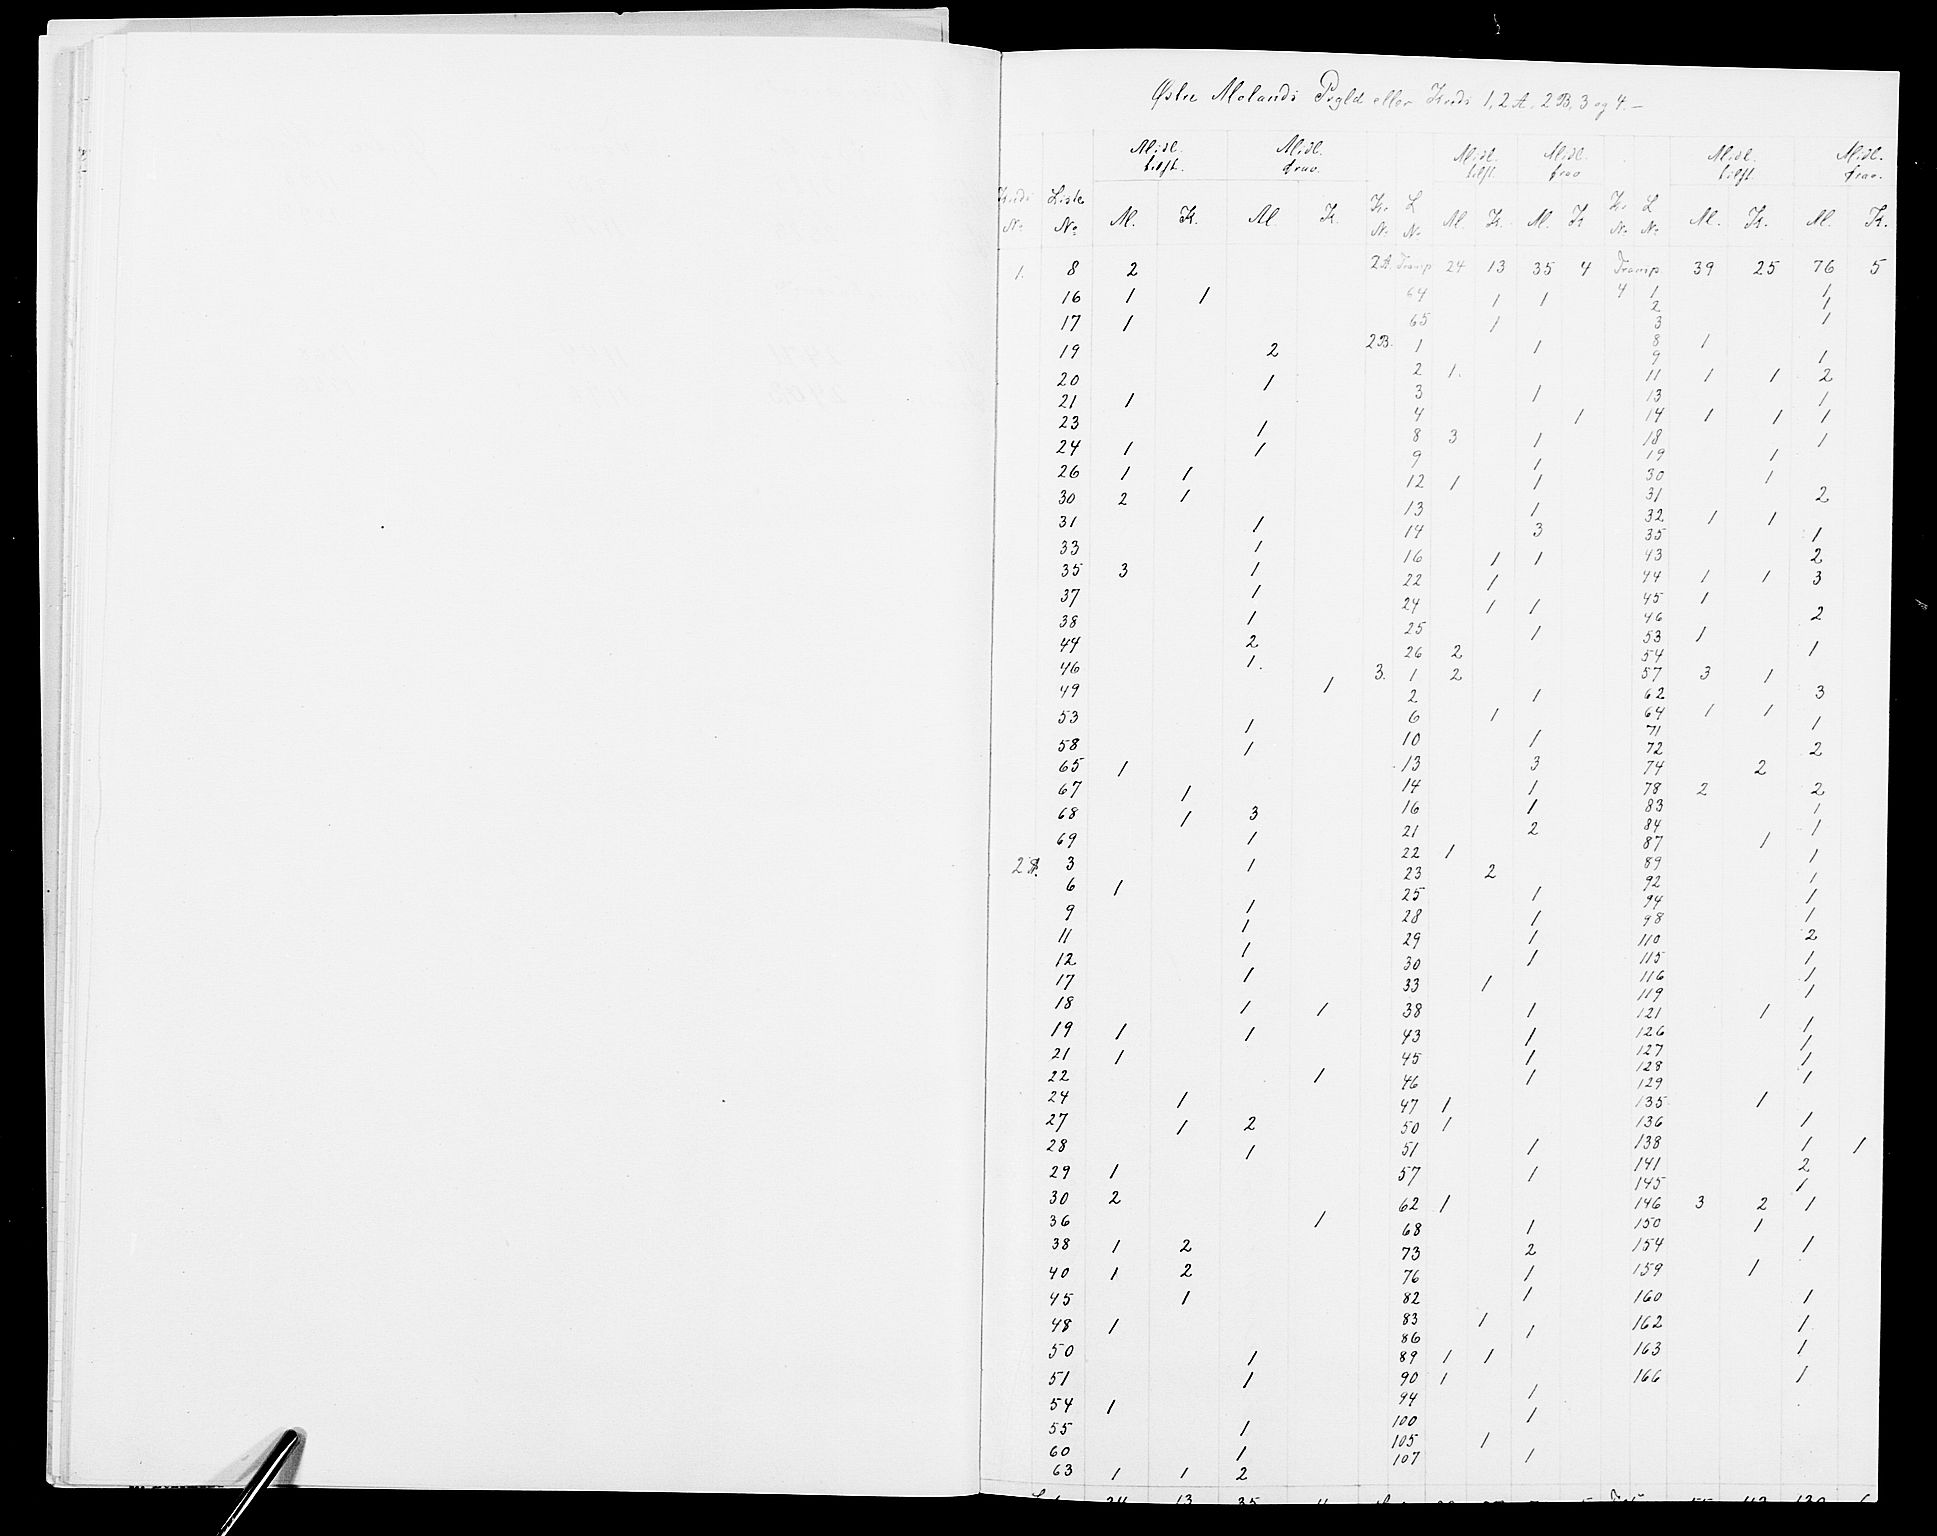 Østre Molands Prgld eller Kreds 1, 2 A, 2 B, 3 og 4.
Midl. tilst. Midl. frav. Midl. tilst. Midl. frav Midl. tilst Midl. frav.
Kreds No Liste No M. K. M. K. Kr. No L No M. K. M. K Kr. No L No M. K. M. K.
1. 8 2
16 1 1
17 1
19 2
20 1
21 1
23 1
24 1 1
26 1 1
30 2 1
31 1
33 1
35 3 1
37 1
38 1
44 2
46 1.
49 1
53 1
58 1
65 1
67 1
68 1 3
69 1
2 A. 3 1
6 1
9 1
11 1
12 1
17 1
18 1 1
19 1 1
21 1
22 1
24 1
27 1 2
28 1
29 1
30 2
36 1
38 1 2
40 1 2
45 1
48 1
50 1
51 1
54 1
55 1
60 1
63 1 1 2
24 13 35 4
2 A. Transp 24 13 35 4
64 1 1
65 1
2 B. 1 1
2 1.
3 1
4 1
8 3 1
9 1
12 1 1
13 1
14 3
16 1 1
22 1
24 1 1
25 1
26 2
3. 1 2
2 1
6 1
10 1
13 3
14 1
16 1
21 2
22 1
23 2
25 1
28 1
29 1
30 1
33 1
38 1
43 1
45 1
46 1
47 1
50 1
51 1
57 1
62 1
68 1
73 2
76 1
82 1
83 1
86 1
89 1 1
90 1
94 1
100 1
105 1
107 1
Transp. 39 25 76 5
4 1 1
2 1
3 1
8 1
9 1
11 1 1 2
13 1
14 1 1 1
18 1
19 1
30 1
31 2
32 1 1
35 1
43 2
44 1 1 3
45 1
46 2
53 1
54 1
57 3 1
62 3
64 1 1
71 1
72 2
74 2
78 2 2
83 1
84 1
87 1
89 1
92 1
94 1
98 1
110 2
115 1
116 1
119 1
121 1
126 1
127 1
128 1
129 1
135 1
136 1
138 1 1
141 2
145 1
146 3 2 1
150 1
154 1
159 1
160 1
162 1
163 1
166 1